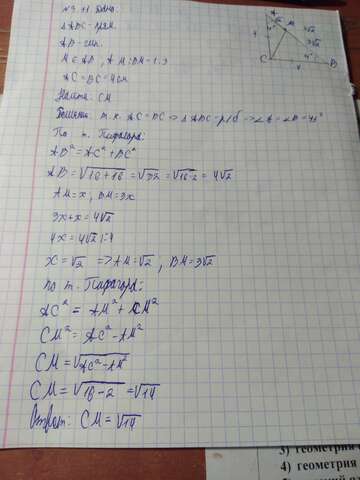 N3.11. Дано:
△ABC-прям.
AB-гип.
M∈AB, AM:BM=1:3
AC=BC=4см
Найти: CM
Решение: т.к. AC=BC => △ABC-р/б => ∠A=∠B=45°
По т. Пифагора:
AB²=AC²+BC²
AB=√16+16=√32=√16·2=4√2
AM=x, BM=3x
3x+x=4√2
4x=4√2 |:4
x=√2 => AM=√2, BM=3√2
по т. Пифагора:
AC²=AM²+CM²
CM²=AC²-AM²
CM=√AC²-AM²
CM=√16-2=√14
Ответ: CM=√14
A
M
√2
3√2
4
C
4
45°
B
3) геометрия
4) геометрия